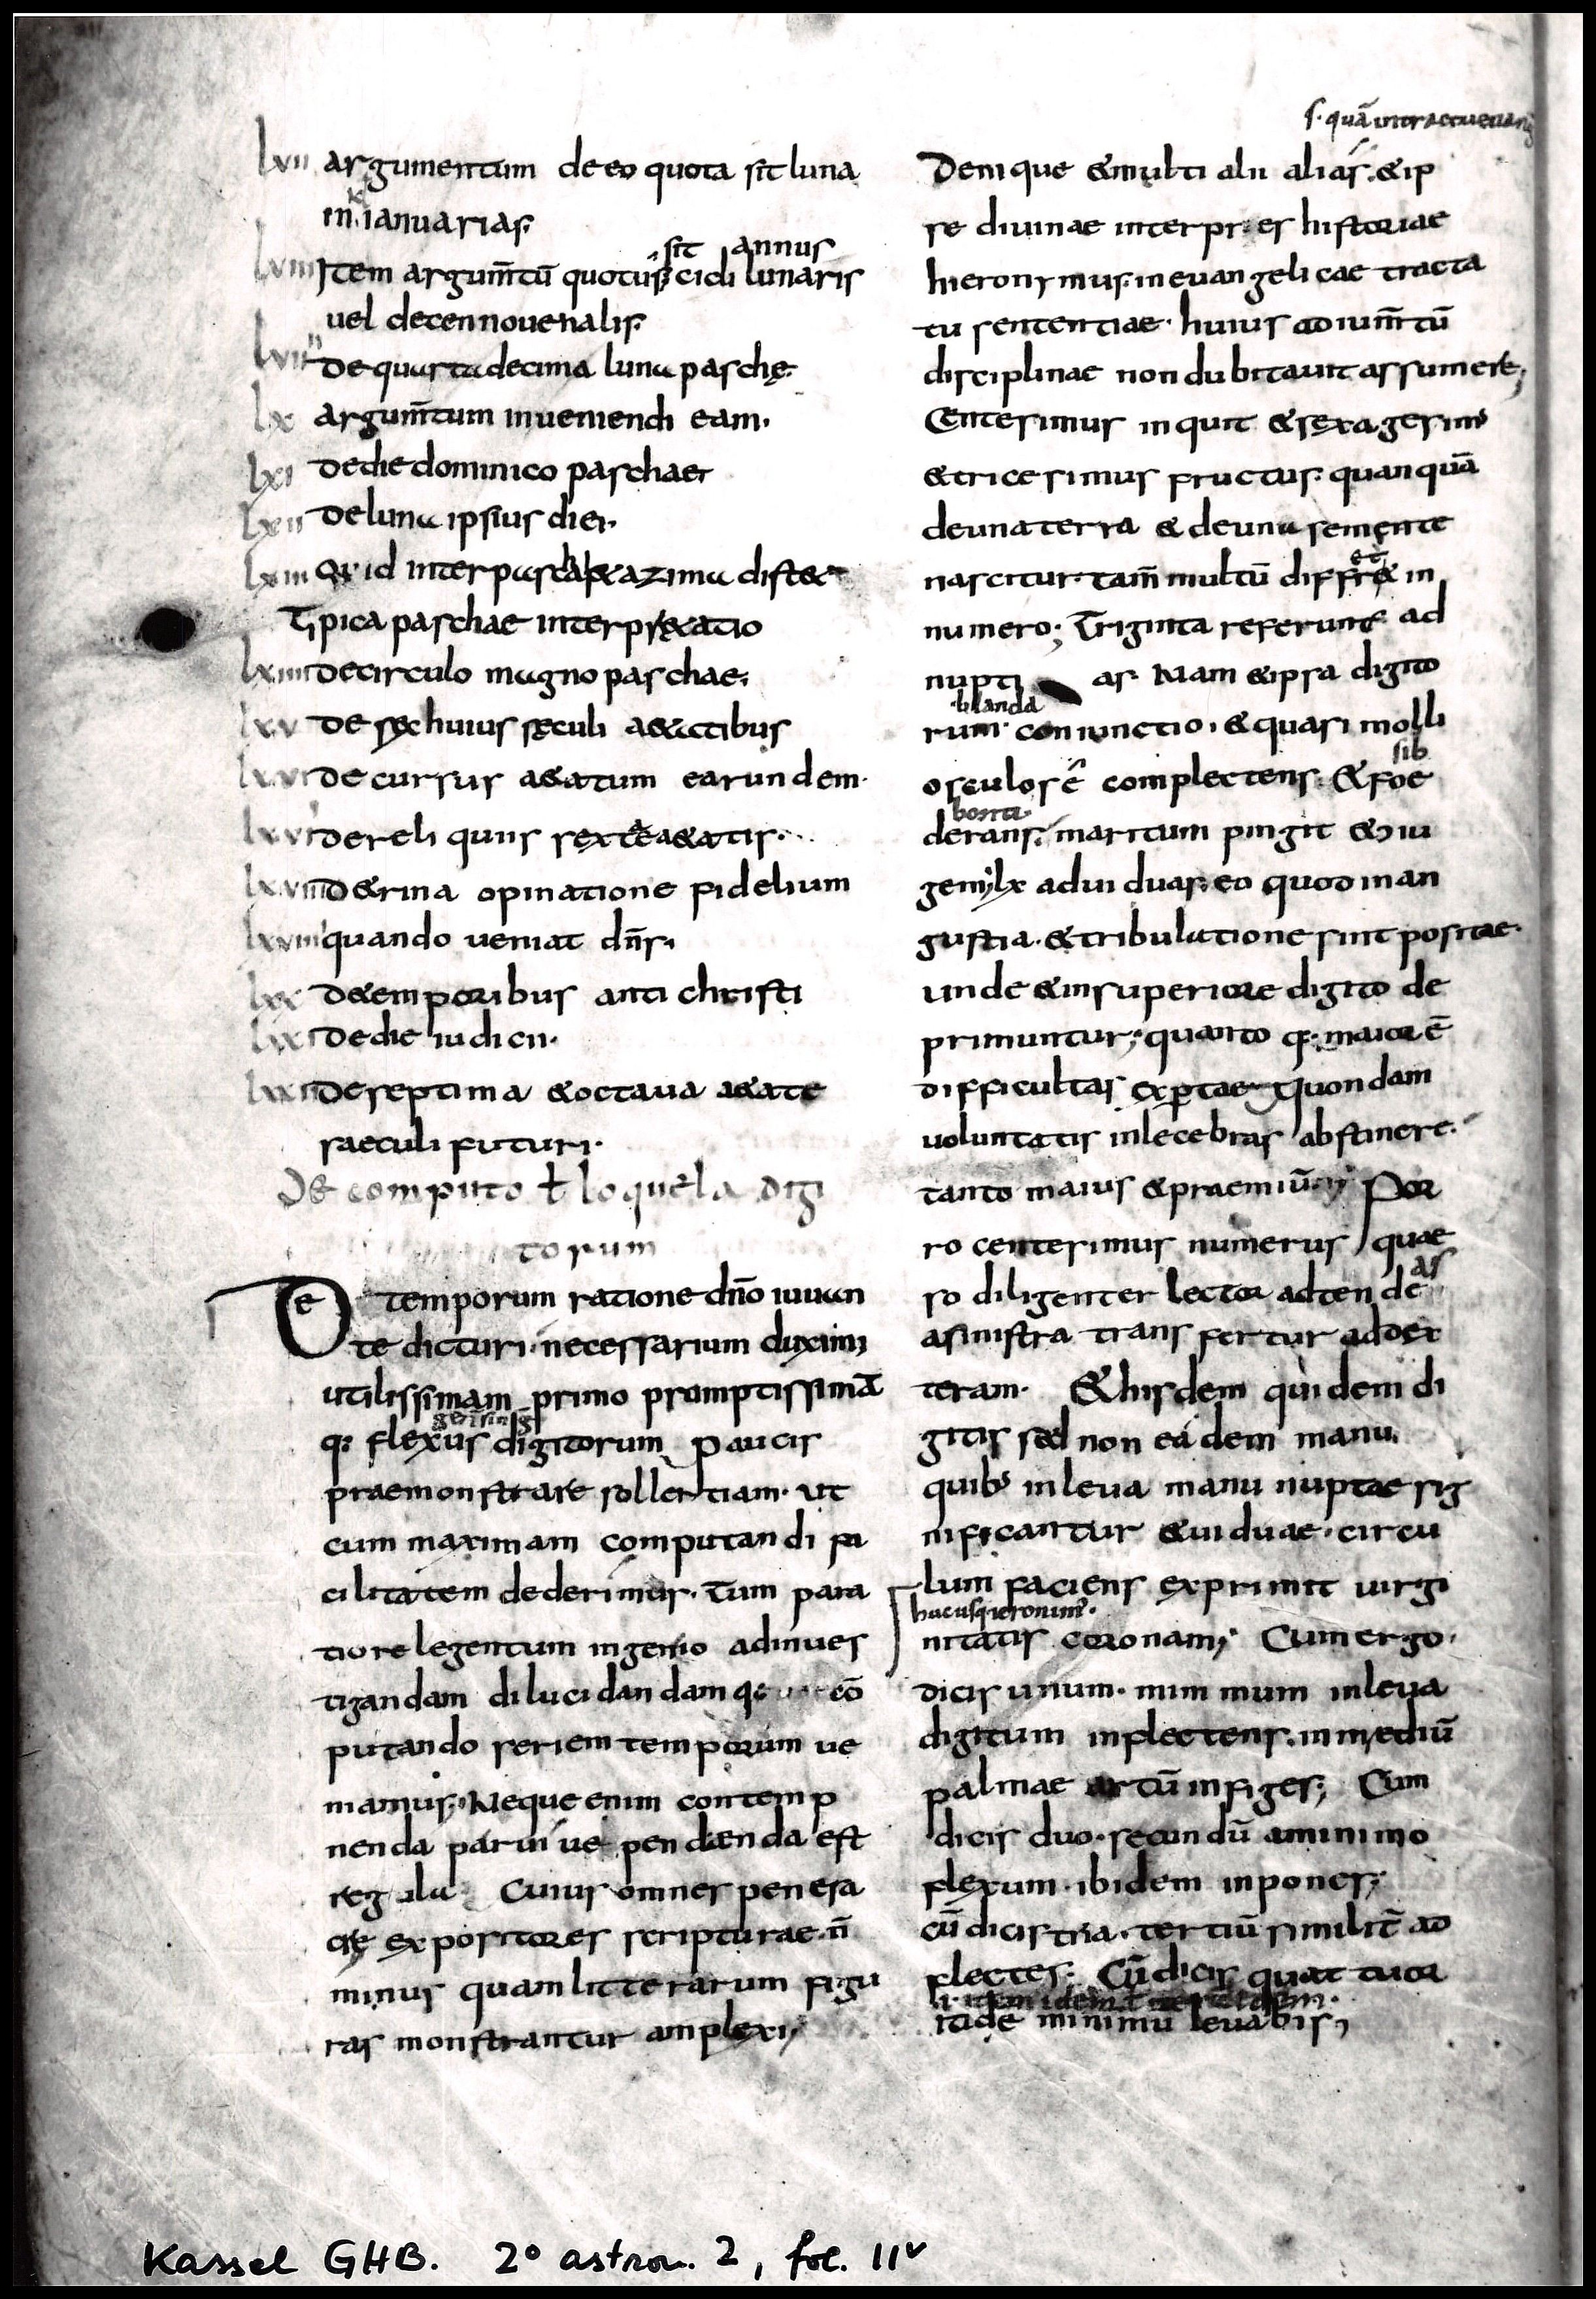 lvii argumentum de eo quota sit luna
in kl ianuarias.
lviii Item argum̄tū quotus sit cicli lunaris annus
uel decennouenalis.
lviiii De quarta decima luna paschę.
lx argum̄tum inueniendi eam.
lxi De die dominico paschae
lxii De luna ipsius diei.
lxiii Quid inter pascha & azima dist&
Tipica paschae interpr&atio
lxiiii De circulo magno paschae.
lxv De sex huius sęculi a&atibus
lxvi De cursus a&atum earundem.
lxvii De reliquiis sextae a&atis.
lxviii De trina opinatione fidelium
lxviiii quando ueniat dn̄s.
lxx De temporibus anti christi
lxxi De die iudicii.
lxxii De septima & octaua a&ate
saeculi futuri.
De computo ł loquela digi
torum
De temporum ratione dn̄o iuuan
te dicturi. necessarium duximus
utilissimam primo promptissimā
q; flexus digitorum paucis
praemonstrare sollertiam. ut
cum maximam computandi fa
cilitatem dederimus. Tum para
tiore legentum ingenio ad inues
tigandam dilucidandamq; cō
putando seriem temporum ue
niamus. Neque enim contemp
nenda parui ue pendænda est
regula Cuius omnes pene sa
crę expositores scripturae. n̄
minus quam litterarum figu
ras monstrantur amplexi;
Denique & multi alii alias. & ip
se diuinae interpres historiae
hieronymus. in euangelicae tracta
tu sententiae. huius adium̄tū
disciplinae non dubitauit assumere;
Centesimus inquit & sexagesimus
& tricesimus fructus. quanquā
de una terra & de una semente
nascitur. tam̄ multū differ& in
numero; Triginta referunt ad
nupti as. Nam & ipsa digito
blanda
rum coniunctio. & quasi molli
sib
osculo se complectens. & foe
derans. maritum pingit & coniu
gem; lx ad uiduas. eo quod in an
gustia. & tribulatione sint positae.
unde & in superiore digito de
primuntur; quanto q; maior ē
difficultas expertae quondam
uoluntatis inlecebras abstinere.
tanto maius & praemiū; Por
ro centesimus numerus quae
so diligenter lector adtendeas
a sinistra transfertur ad dex
teram. & hisdem quidem di
gitis sed non eadem manu.
quib; in leua manu nuptae sig
nificantur & uiduae. circu
lum faciens exprimit uirgi
hucusq; ieronim̄.
nitatis coronam; Cum ergo
dicis unum. minimum in leua
digitum inflectens. in mediū
palmae artū infiges; Cum
dicis duo. secundū a minimo
flexum. ibidem inpones;
cū dicis tria. tertiū similit̄ ad
flectes; Cū dicis quattuor
itide minimū leuabis;
Kassel GHB. 2° astron. 2, fol. 11v